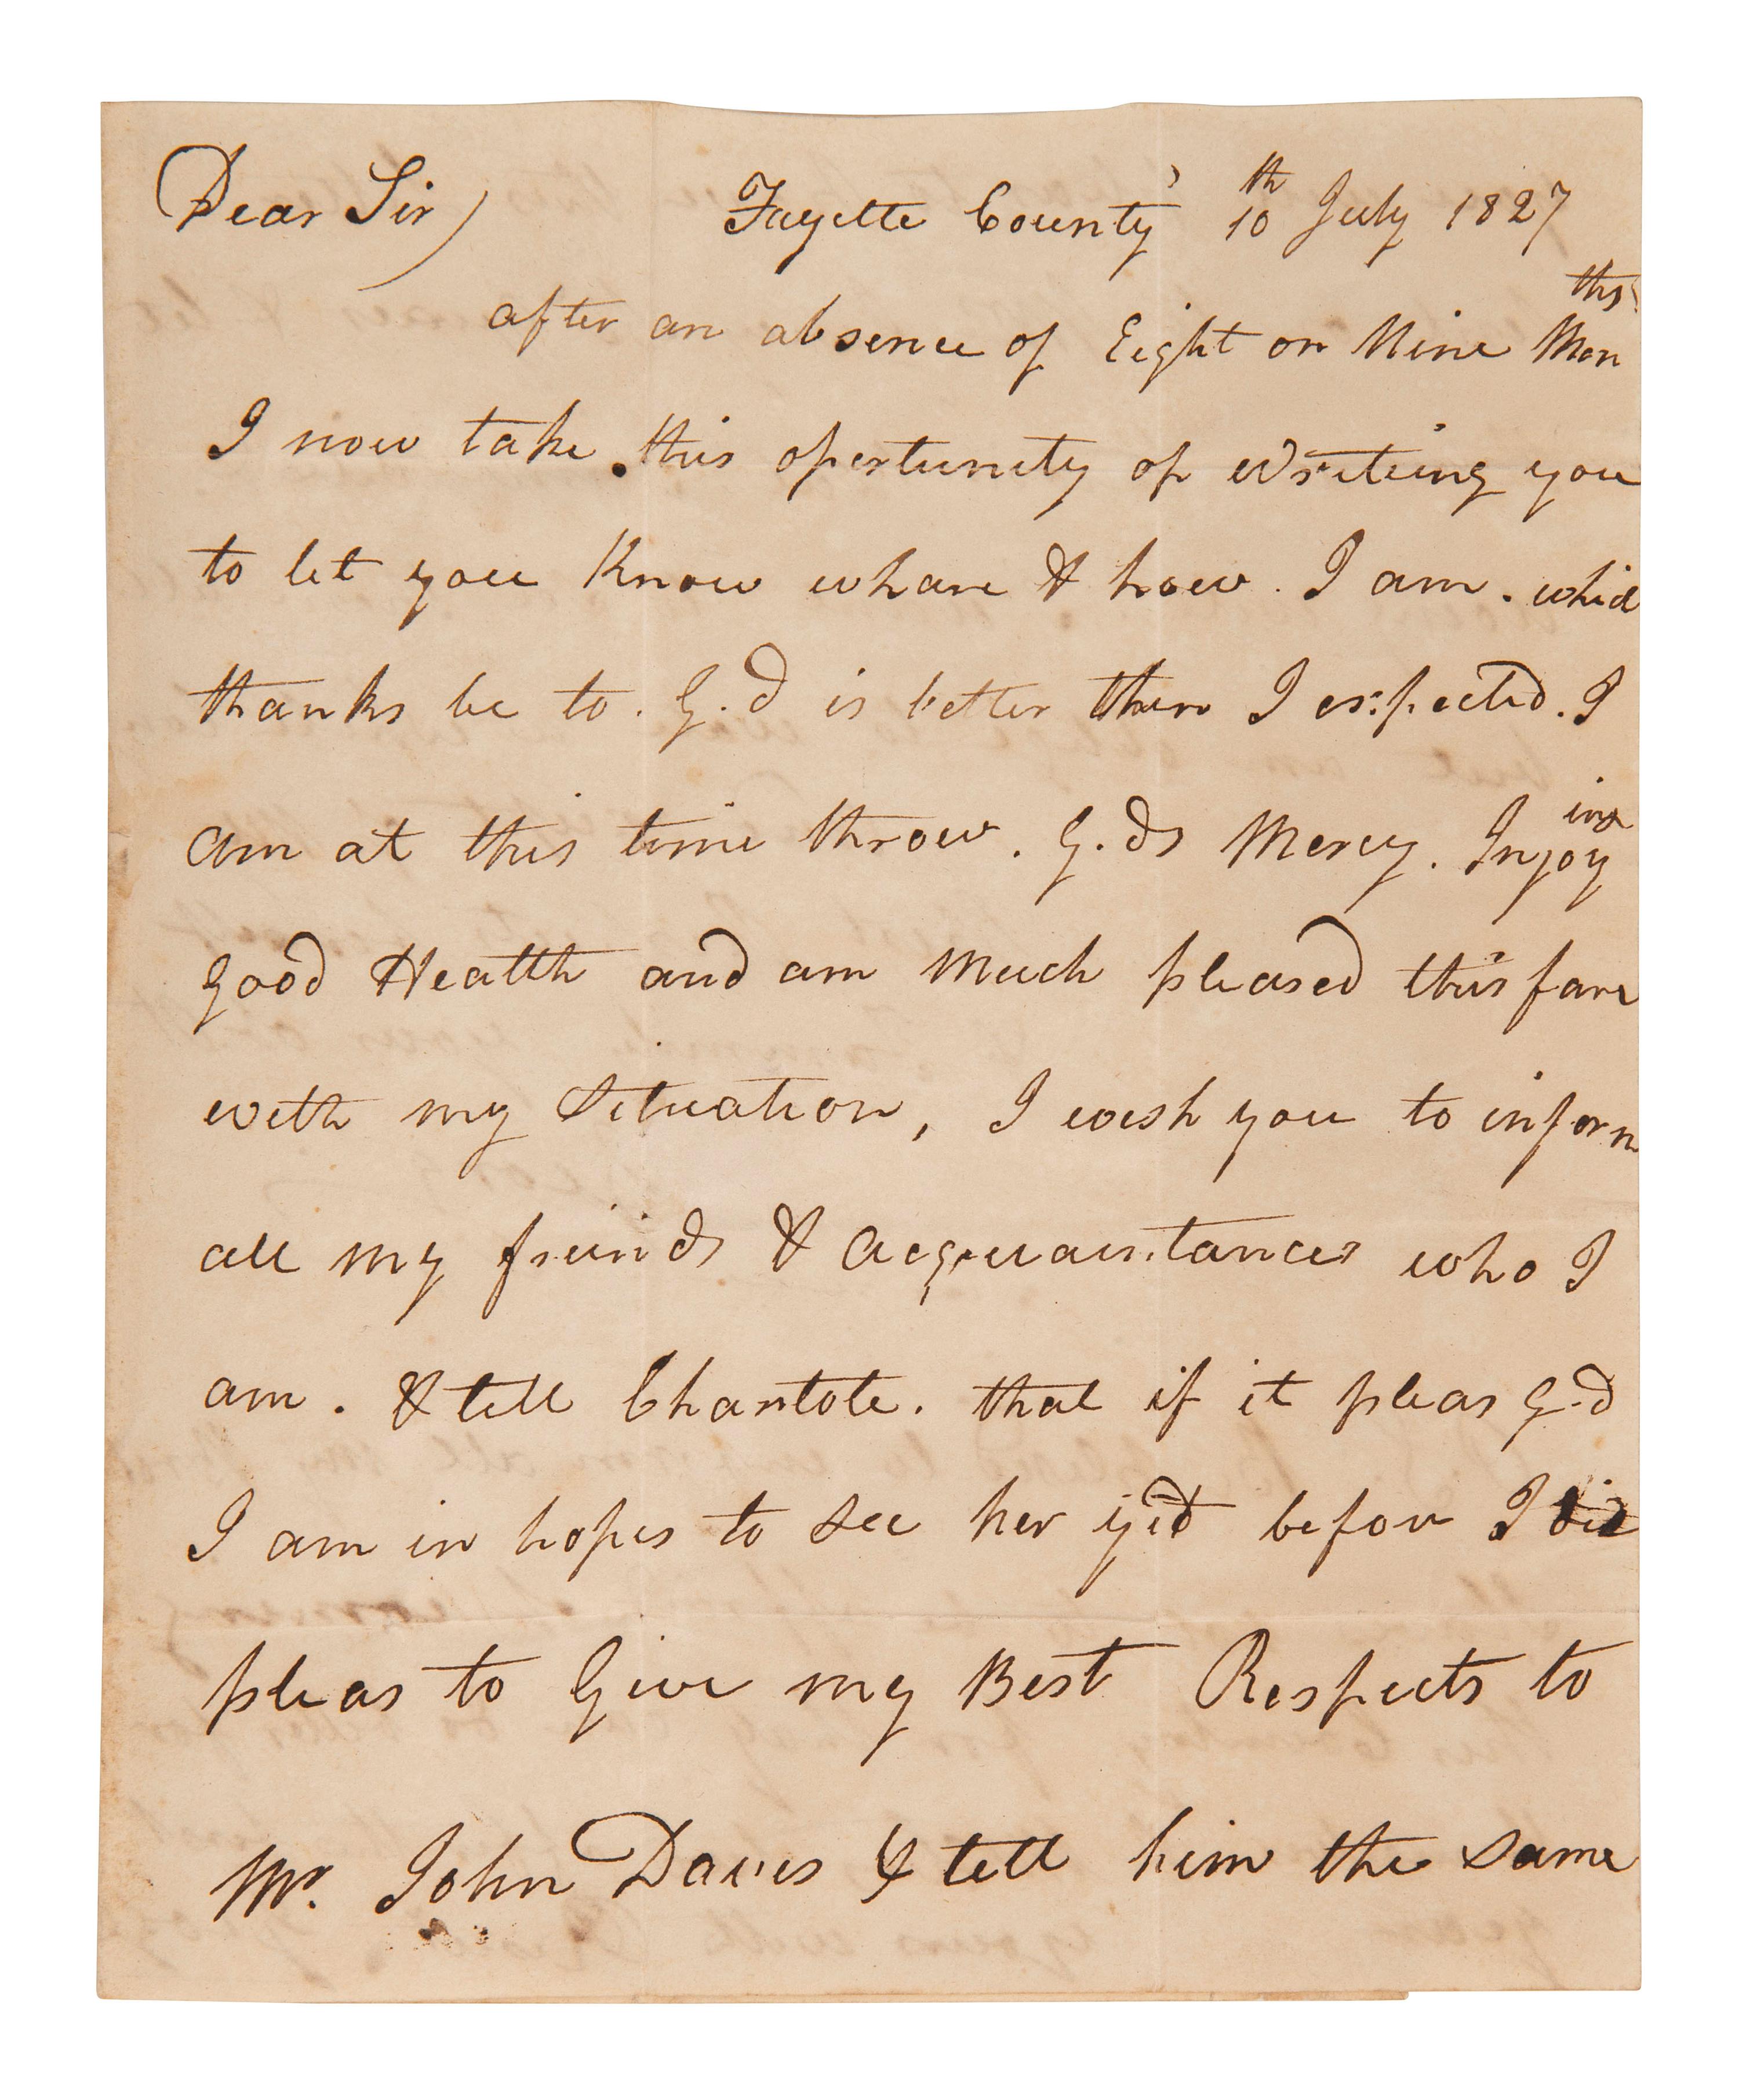 Dear Sir) Fayette County 10th July 1827
after an absence of Eight or Nine Months
I now take this opertunity of Writeing you
to let you Know whare & how. I am. which
thanks be to. G.d is better then I expected. I
am at this time throw. G.ds Mercy. Injoying
good Health and am Much pleased this fare
with my Situation, I wish you to inform
all my friends & acquaintances who I
am. & tell Charlote. that if it pleas G.d
I am in hopes to see her yit before I die
pleas to Give my Best Respects to
Mr. John Davis & tell him the same